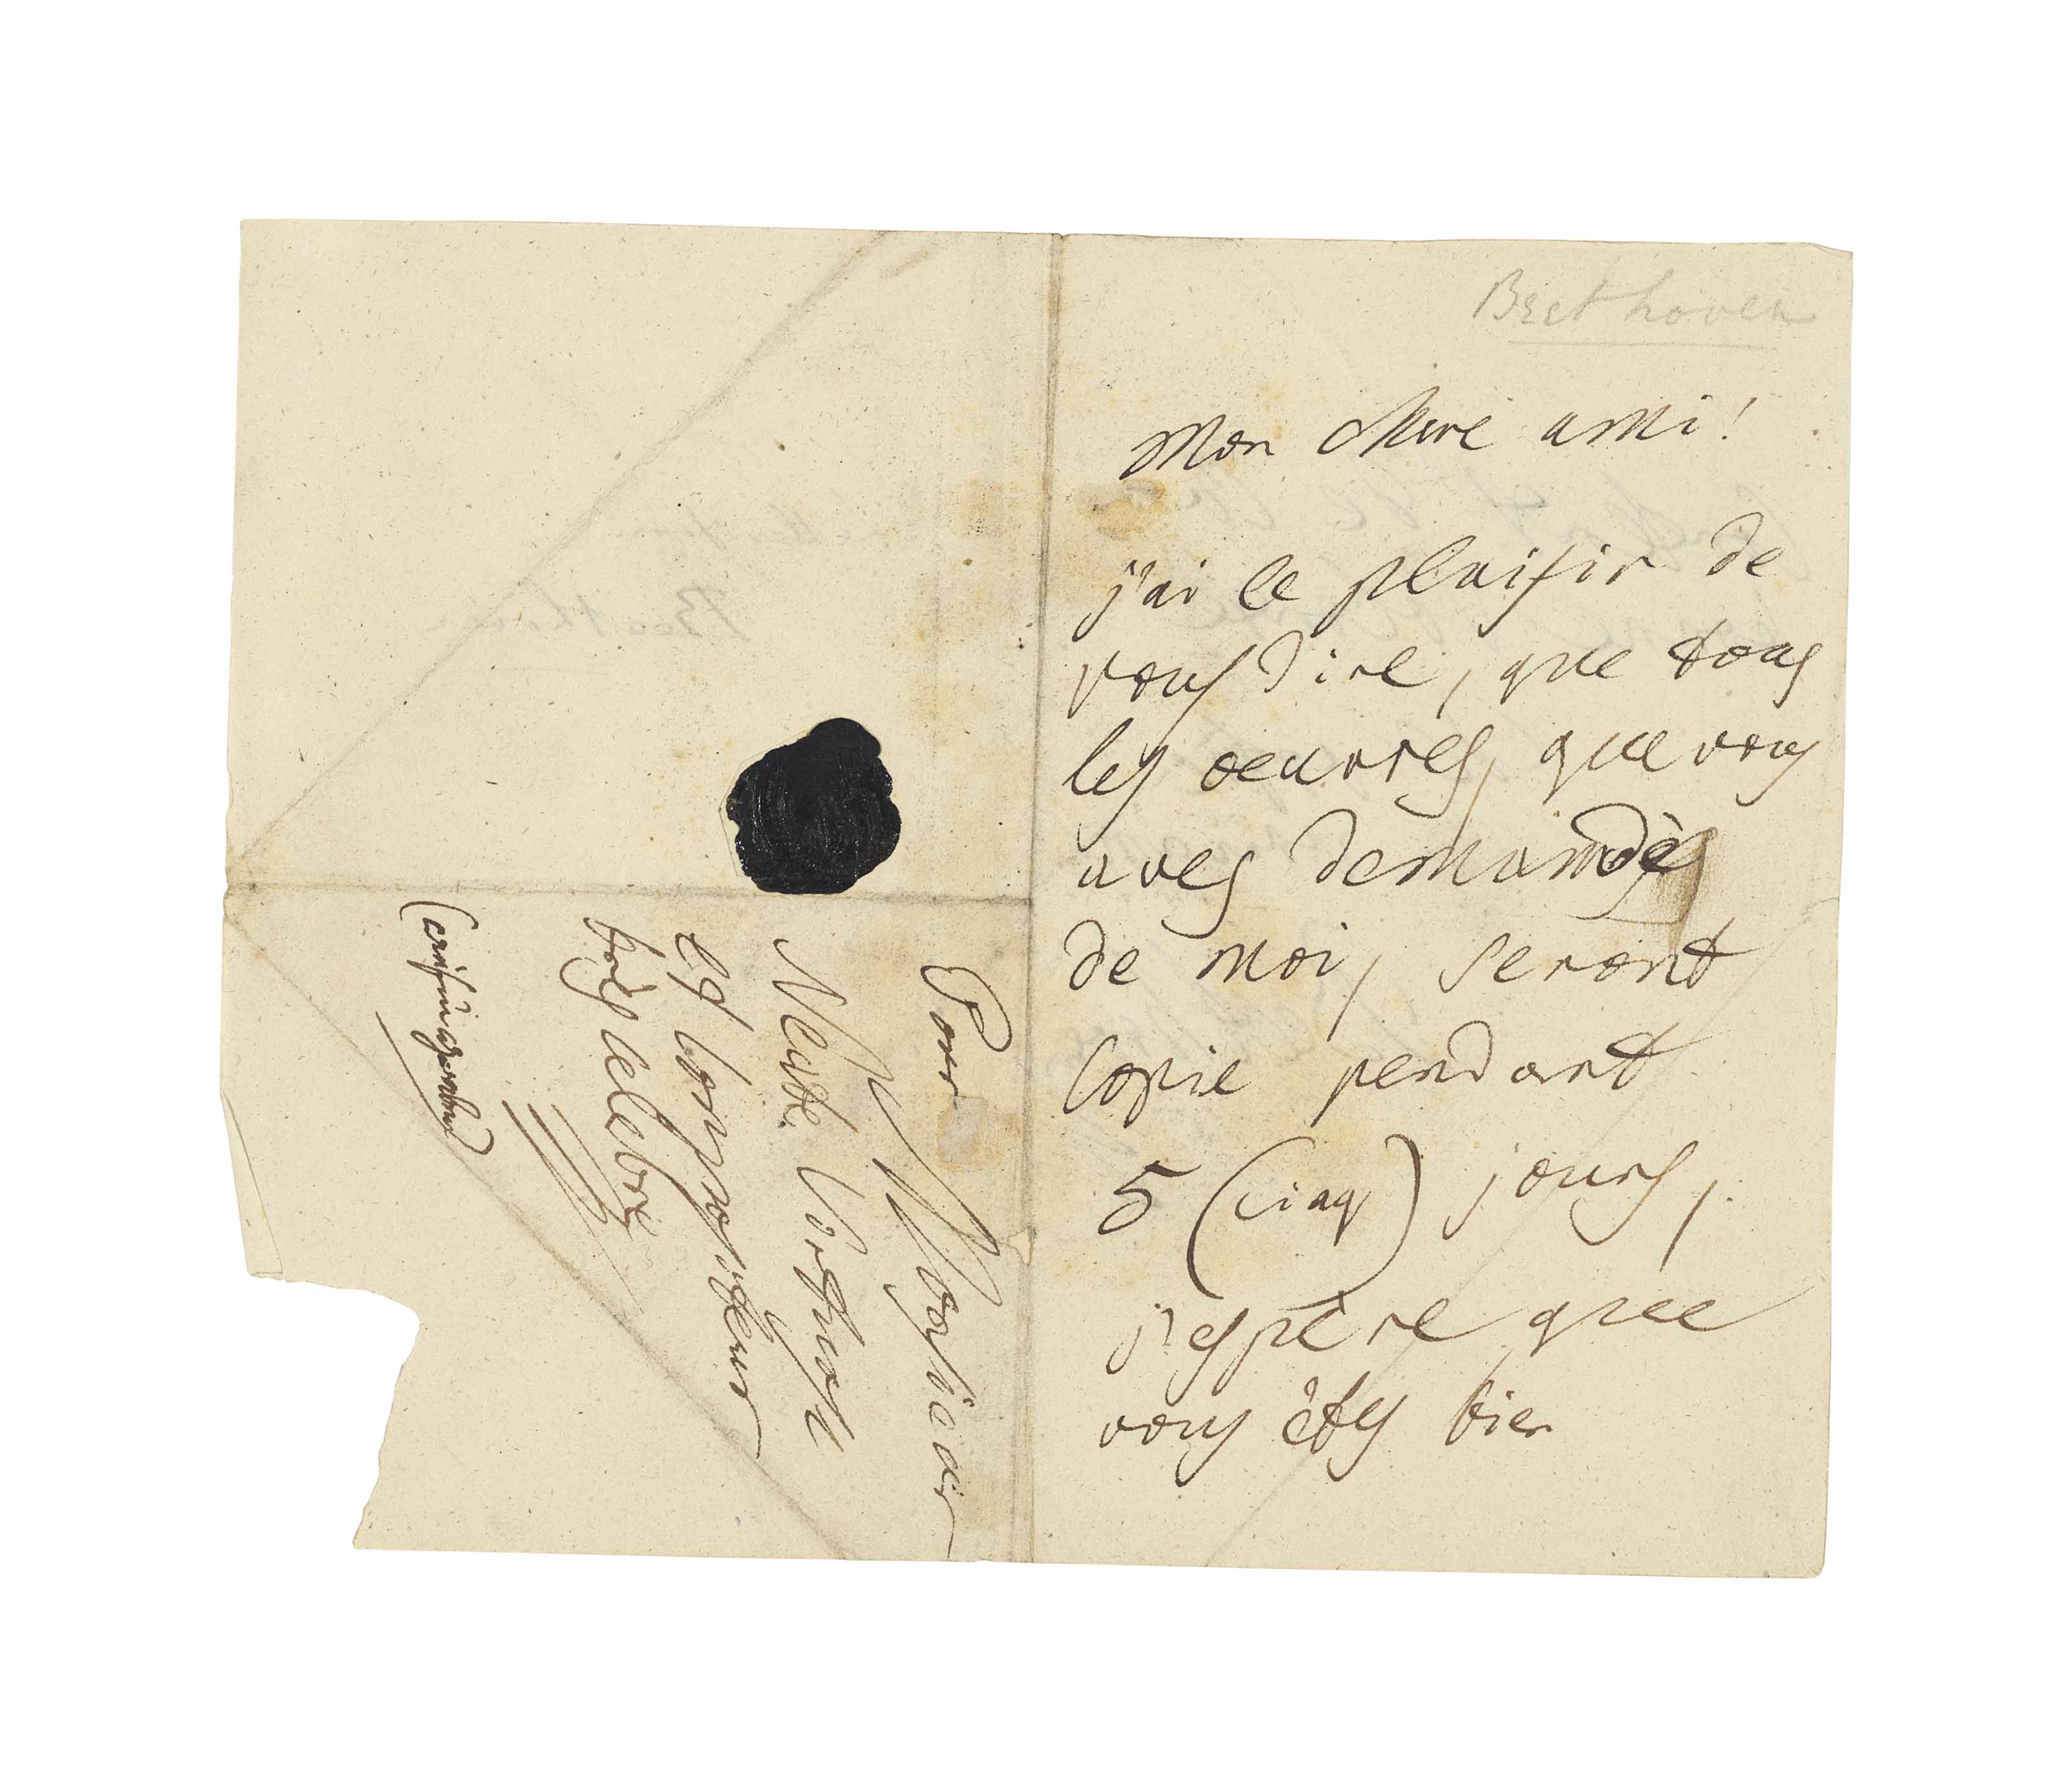 Beethoven
Mon chere ami!
j'ai le plaisir de
vous dire, que tous
les oeuvres, que vous
aves demandès
de moi, seront
copie pendant
5 (cinq) jours,
j'espère que
vous êtes bien
Pour Monsieur
Neate
et compositeur
très celebre